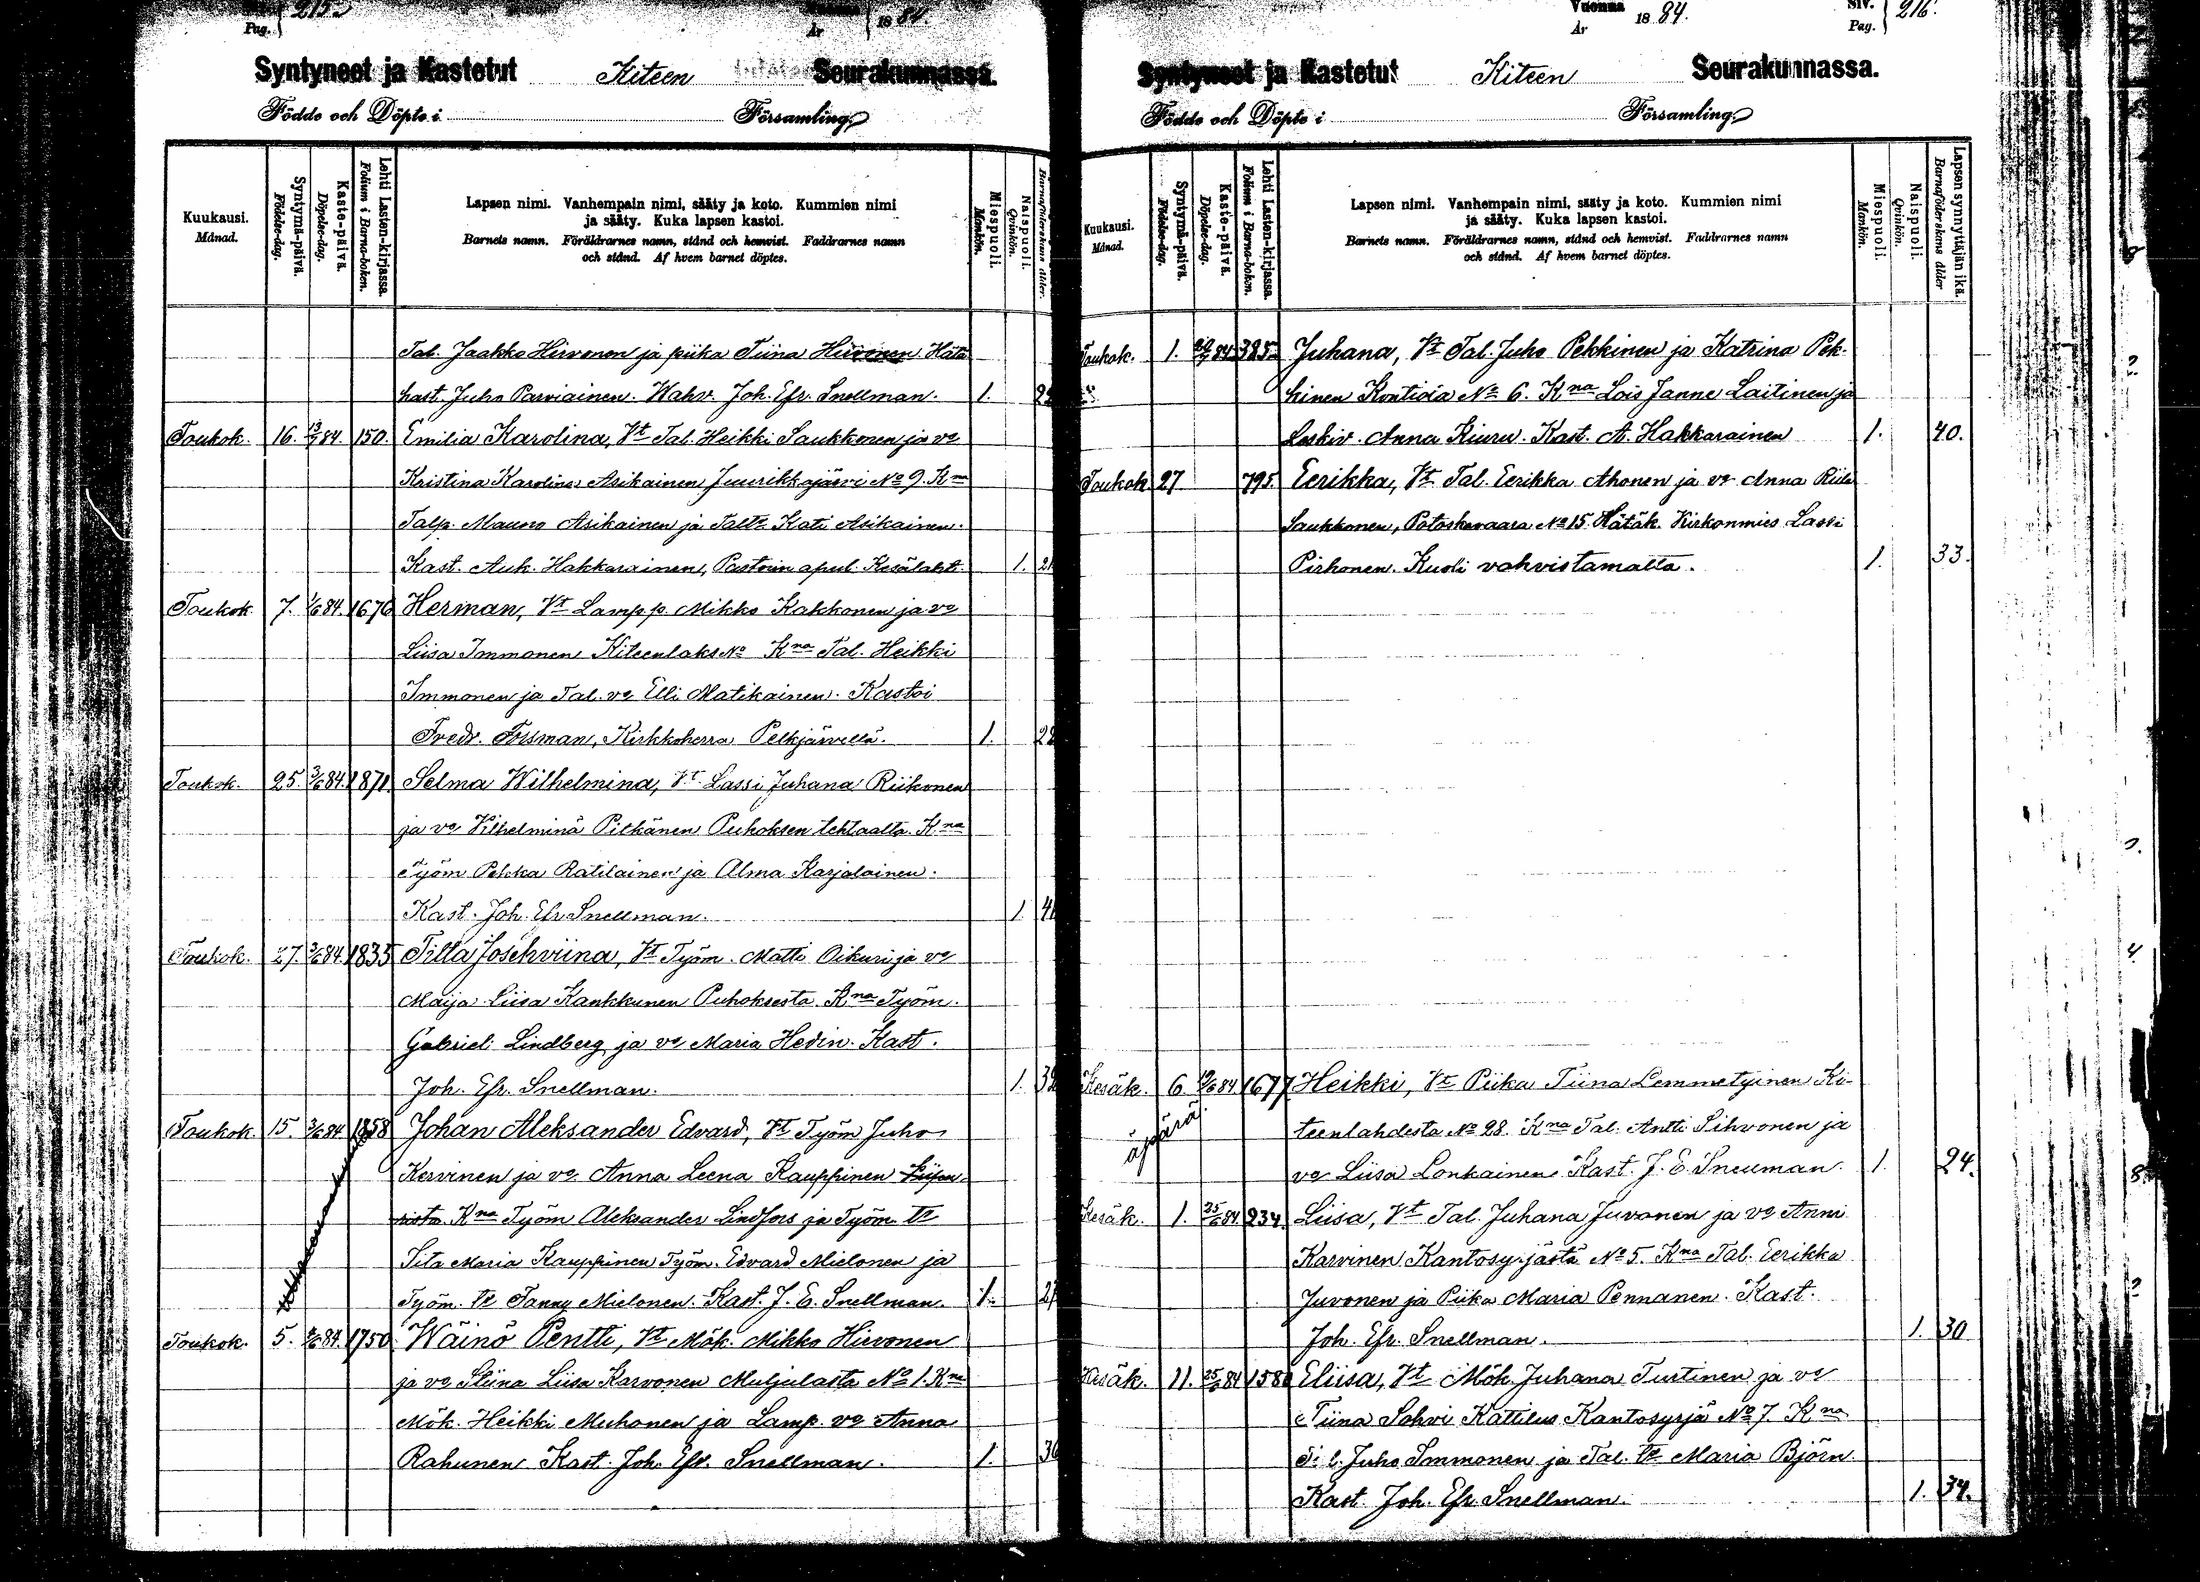 Pag. 215.
Vuonna
År 1884.
Syntyneet ja Kastetut Kiteen Seurakunnassa.
Födde och Döpte i Församling
Kuukausi.
Månad.
Syntymä-päivä.
Födelse-dag.
Kaste-päivä.
Döpelse-dag.
Lehti Lasten-kirjassa.
Folium i Barna-boken.
Lapsen nimi. Vanhempain nimi, sääty ja koto. Kummien nimi
ja sääty. Kuka lapsen kastoi.
Barnets namn. Föräldrarnes namn, stånd och hemvist. Faddrarnes namn
och stånd. Af hvem barnet döptes.
Miespuoli.
Mankön.
Naispuoli.
Qvinkön.
Barnaföderskans ålder.
Tal. Jaakko Hirvonen ja piika Tiina Hirvonen Hätä
kast. Juho Parviainen. Wahv. Joh. Efr. Snellman. 1.
Toukok. 16. 84. 150. Emilia Karolina, Vt Tal. Heikki Saukkonen ja vo
Kristina Karolina Asikainen Juurikkajärvi No 9. Kna
Talp. Mauno Asikainen ja Taltr Kati Asikainen.
Kast. Auk. Hakkarainen, Pastorin apul. Kesälaht. 1. 21
Toukok. 7. 1/6 84. 1676 Herman, Vt Lampp. Mikko Kakkonen ja vo
Liisa Immonen Kiteenlaks No Kna Tal. Heikki
Immonen ja Tal. vo Elli Matikainen. Kastoi
Fredr. Forsman, Kirkkoherra Pelkjärvellä. 1. 22
Toukok. 25. 3/6 84. 1871 Selma Wilhelmina, Vt Lassi Juhana Riikonen
ja vo Vilhelmina Pitkänen Puhoksen tehtaalta. Kna
Työm Pekka Ratilainen ja Alma Karjalainen.
Kast. Joh. Efr Snellman. 1. 41
Toukok. 27. 3/6 84. 1835 Tilta Josehviina, Vt Työm. Matti Oikuri ja vo
Maija Liisa Kankkunen Puhoksesta. Kna Työm.
Gabriel Lindberg ja vo Maria Hedin. Kast.
Joh. Efr. Snellman. 1. 32
Toukok. 15. 3/6 84 1858 Johan Aleksander Edvard, Vt Työm Juho
Kervinen ja vo Anna Leena Kauppinen
Kna Työm Aleksander Lindfors ja Työm tr
Tita Maria Kauppinen Työm. Edvard Mielonen ja
Työm. tr Fanny Mielonen. Kast. J. E. Snellman. 1. 27
Toukok. 5. 84. 1750 Wäinö Pentti, Vt Mök. Mikko Hirvonen
ja vo Stiina Liisa Karvonen Muljulasta No 1. Kna
Mök. Heikki Muhonen ja Lamp. vo Anna
Rahunen Kast. Joh. Efr. Snellman. 1. 36
Vuonna
År 1884.
Siv.
Pag. 216.
Syntyneet ja Kastetut Kiteen Seurakunnassa.
Födde och Döpte i Församling
Kuukausi.
Månad.
Syntymä-päivä.
Födelse-dag.
Kaste-päivä.
Döpelse-dag.
Lehti Lasten-kirjassa.
Folium i Barna-boken.
Lapsen nimi. Vanhempain nimi, sääty ja koto. Kummien nimi
ja sääty. Kuka lapsen kastoi.
Barnets namn. Föräldrarnes namn, stånd och hemvist. Faddrarnes namn
och stånd. Af hvem barnet döptes.
Miespuoli.
Mankön.
Naispuoli.
Qvinkön.
Lapsen synnyttäjän ikä.
Barnaföderskans ålder
Toukok. 1. 84. 325. Juhana, Vt Tal. Juho Pekkinen ja Katrina Pek-
kinen Kontiola No 6. Kna Lois Janne Laitinen ja
Leskiv. Anna Kiuru. Kast. A. Hakkarainen 1. 40.
Toukok 27 795. Eerikka, Vt Tal. Eerikka Ahonen ja vo Anna Riita
Saukkonen, Potoskavaara No 15. Hätäk. Kirkonmies Lassi
Pirhonen. Kuoli vahvistamatta. 1. 33.
Kesäk. 6. 84. 1677 Heikki, Vt Piika Tiina Lemmetyinen Ki-
äpärä
teenlahdesta No 28. Kna Tal. Antti Sihvonen ja
vo Liisa Lonkainen Kast. J. E. Snellman. 1. 24.
Kesäk. 1. 25/6 84. 234 Liisa, Vt Tal. Juhana Juvonen ja vo Anni
Karvinen Kantosyrjästä No 5. Kna Tal. Eerikka
Juvonen ja Piika Maria Pennanen. Kast.
Joh. Efr. Snellman. 1. 30
Kesäk. 11. 25/6 84 158 Eliisa, Vt Mök. Juhana Turtinen ja vo
Tiina Sohvi Kattilus Kantosyrjä No 7. Kna
Juho Immonen ja Tal. tr Maria Björn.
Kast. Joh. Efr. Snellman. 1. 34.